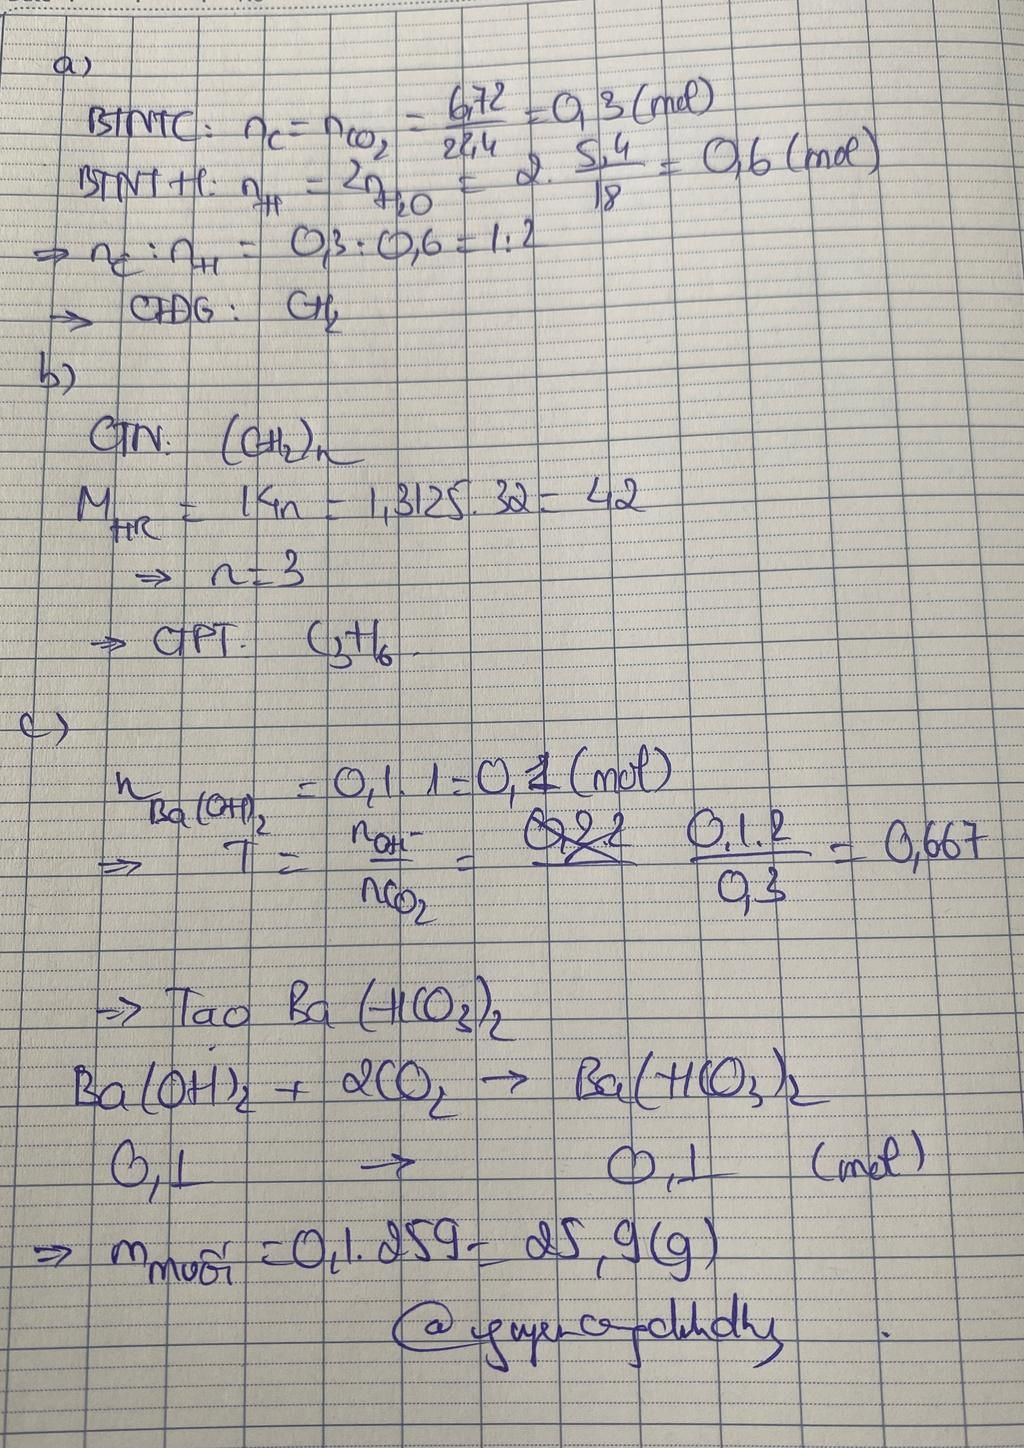 a)
BTNTC: nC = nCO2 = 6,72/22,4 = 0,3 (mol)
BTNT H: nH = 2nH2O = 2. 5,4/18 = 0,6 (mol)
⇒ nC : nH = 0,3 : 0,6 = 1:2
→ CTĐG: CH2
b)
CTN: (CH2)n
MHR = 14n = 1,3125. 32 = 42
⇒ n = 3
⇒ CTPT: C3H6.
c)
nBa(OH)2 = 0,1. 1 = 0,1 (mol)
⇒ T = nOH-/nCO2 = 0,1.2/0,3 = 0,667
⇒ Tạo Ba(HCO3)2
Ba(OH)2 + 2CO2 → Ba(HCO3)2
0,1 → 0,1 (mol)
⇒ mmuối = 0,1. 259 = 25,9 (g)